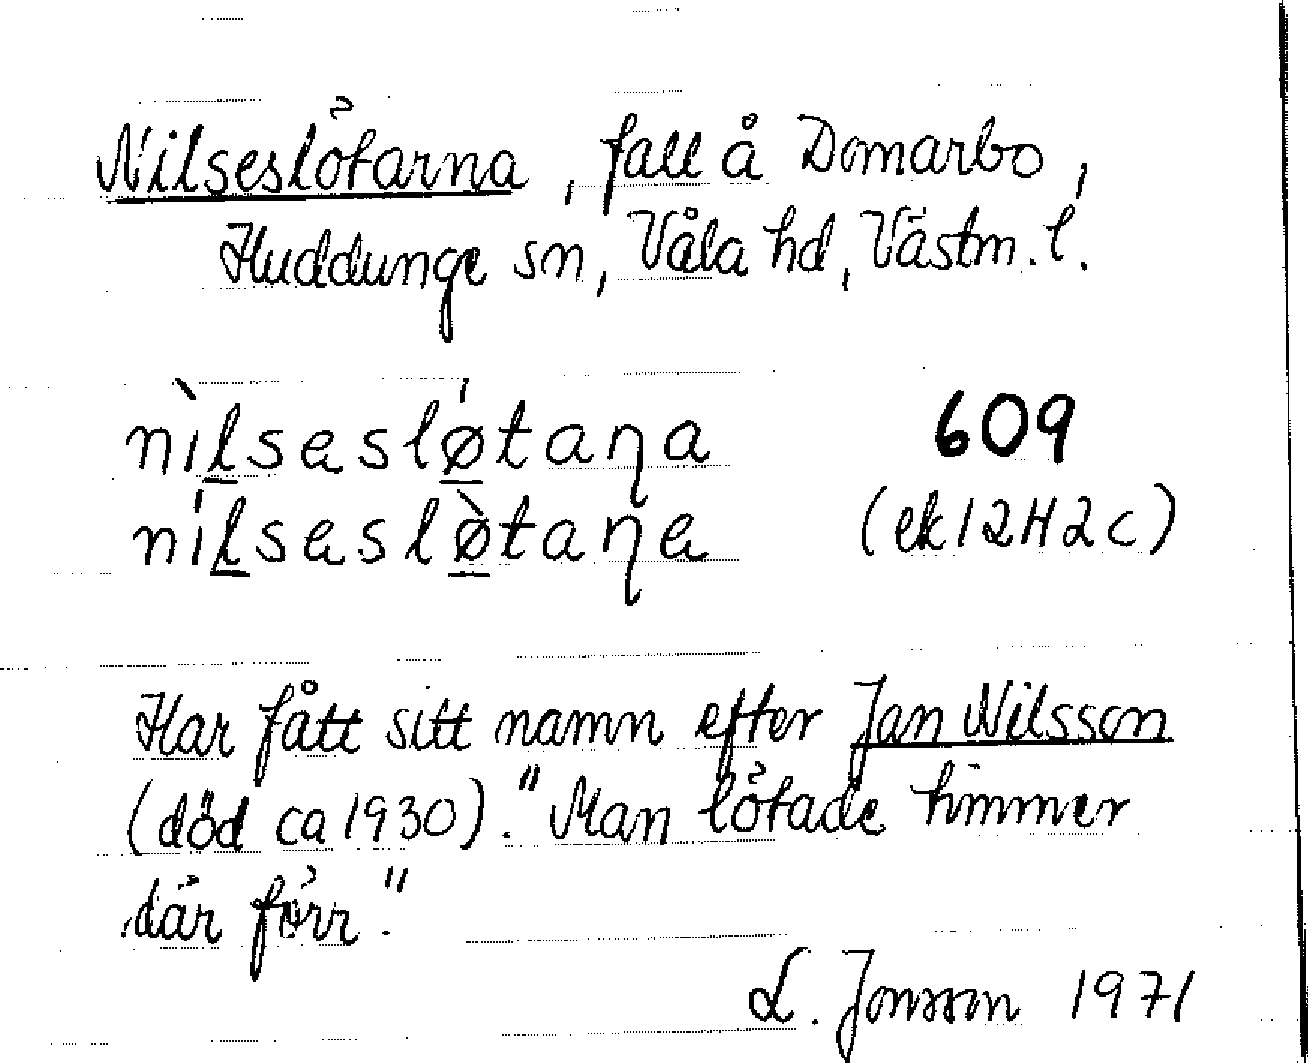 Nilseslötarna, fall å Domarbo,
Huddunge sn, Våla hd, Västm. l.
nìlsəsló̲taɳa 609
nílsəslò̲taɳə (ek 12H2c)
Har fått sitt namn efter Jan Nilsson
(död ca 1930). "Man lötade timmer
där förr."
L. Jonsson 1971